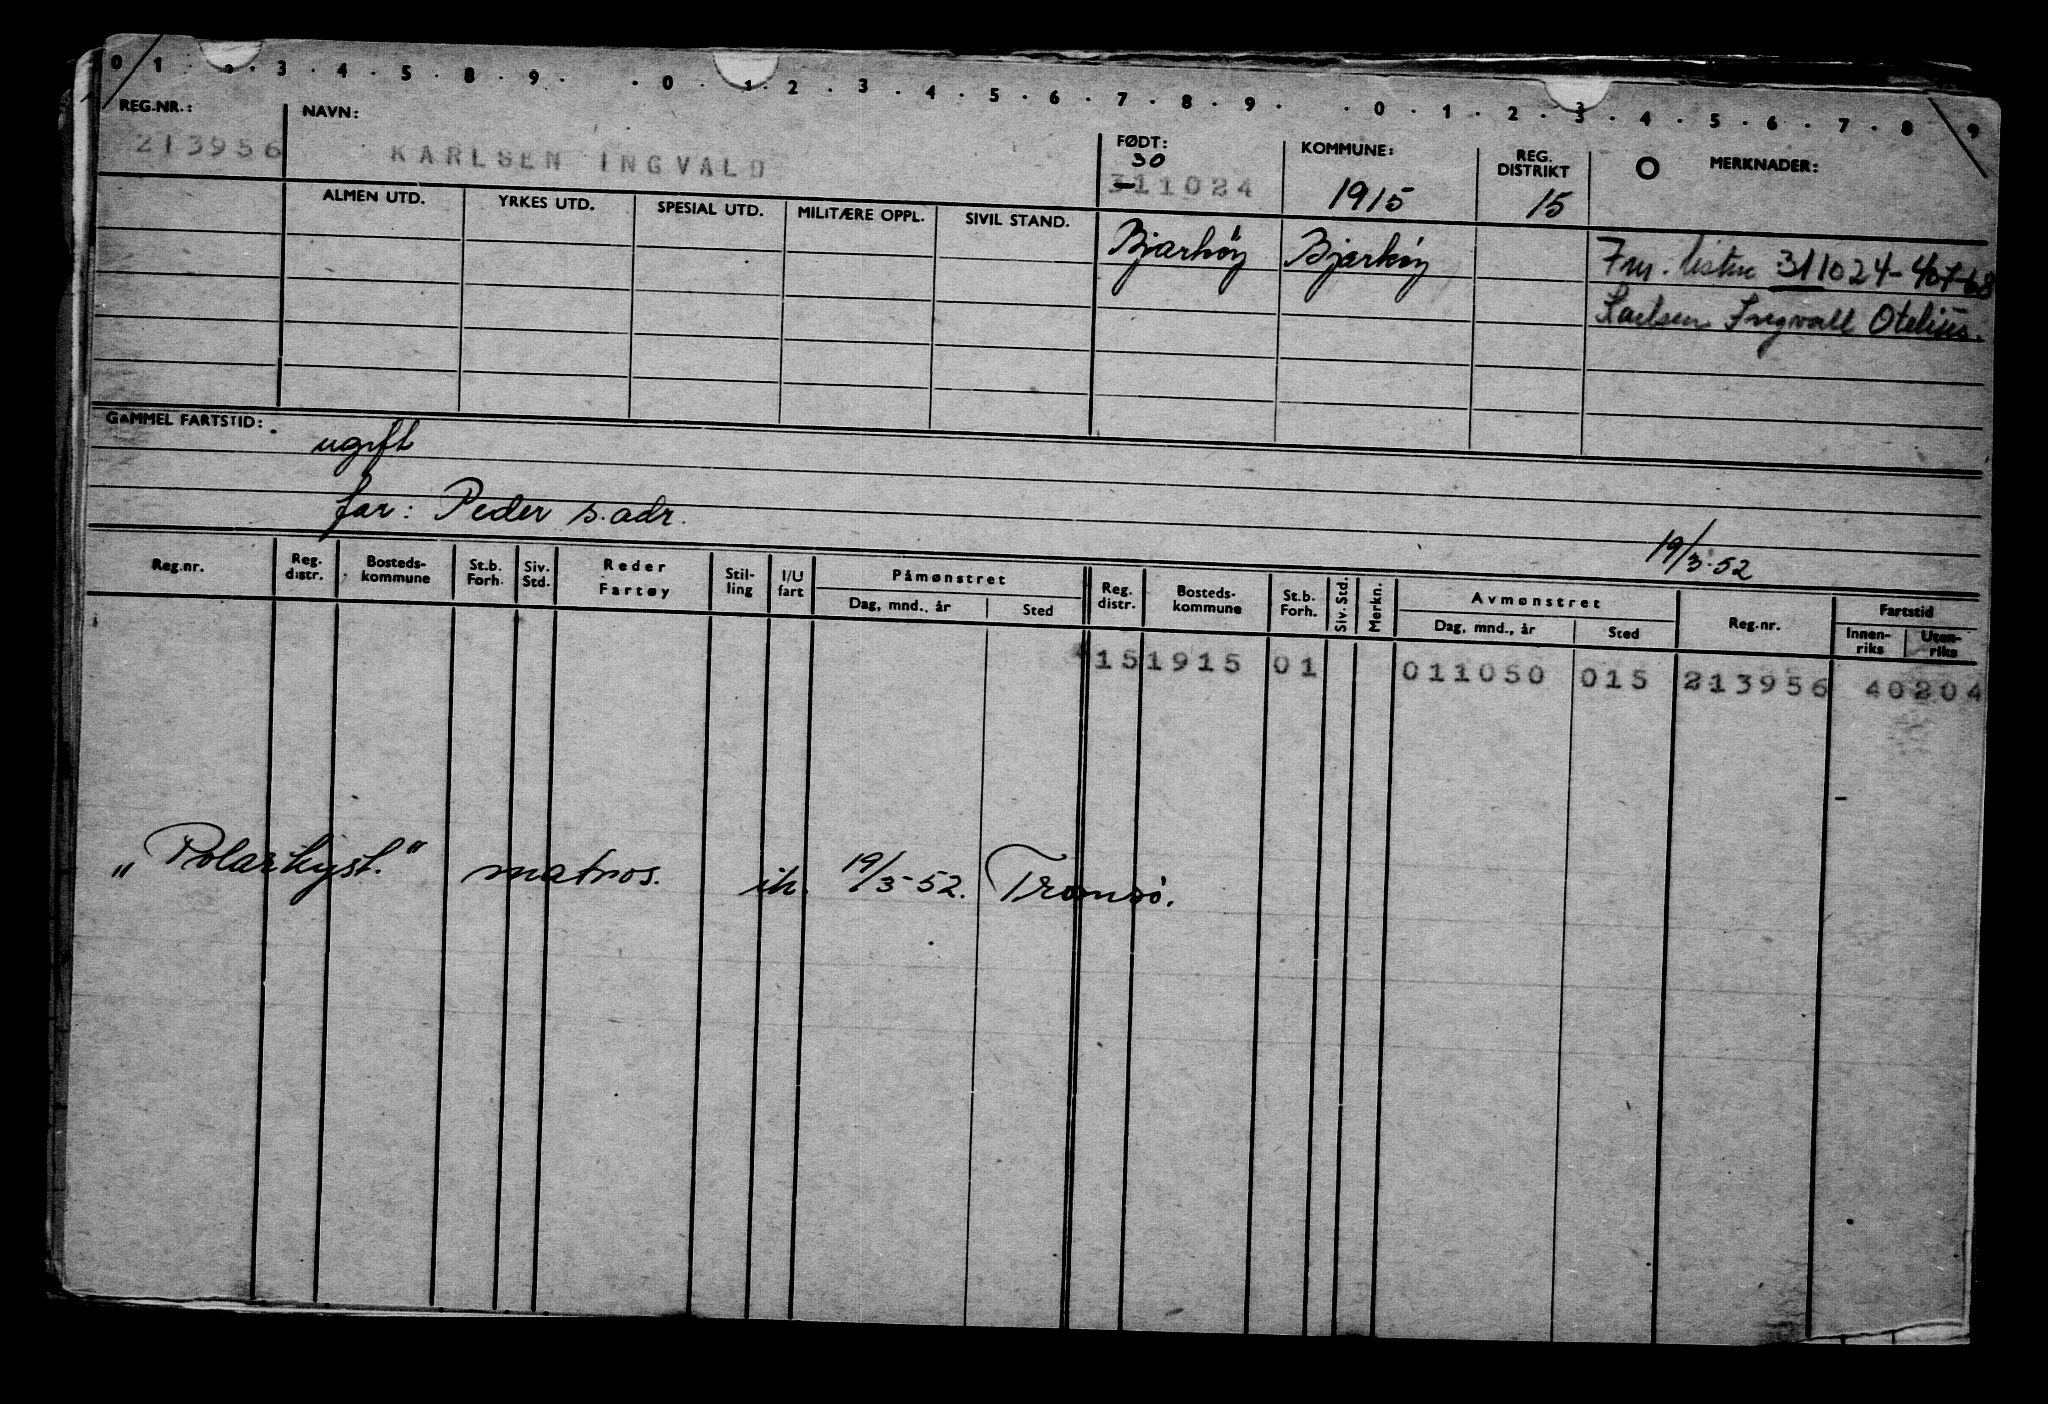 0 1 . 2 . 3 . 4 . 5 . 8 . 9 . . 0 . 1 . 2 . 3 . 4 . 5 . 6 . 7 . 8 . 9 . . 0 . 1 . 2 . 3 . 4 . 5 . 6 . 7 . 8 9
REG.NR.: NAVN: FØDT: KOMMUNE: REG. DISTRIKT O MERKNADER:
30
213956 KARLSEN INGVALD 311024 1915 15
ALMEN UTD. YRKES UTD. SPESIAL UTD. MILITÆRE OPPL. SIVIL STAND.
Bjarköy Bjarköy Fnr. listen 311024-407-68
Karlsen Ingvall Otelius.
GAMMEL FARTSTID:
ugift
far: Peder s.adr.
19/3-52
Reg.nr. Reg. distr. Bosteds-kommune St.b. Forh. Siv. Std. Reder Fartøy Stil-ling I/U fart Påmønstret Reg. distr. Bosteds-kommune St.b. Forh. Siv. Std. Merkn. Avmønstret Reg.nr. Fartstid
Dag, mnd., år Sted Dag, mnd., år Sted Innen-riks Uten-riks
15 1915 01 011050 015 213956 40204
„Polarkyst." matros. ih. 19/3-52. Tromsö.